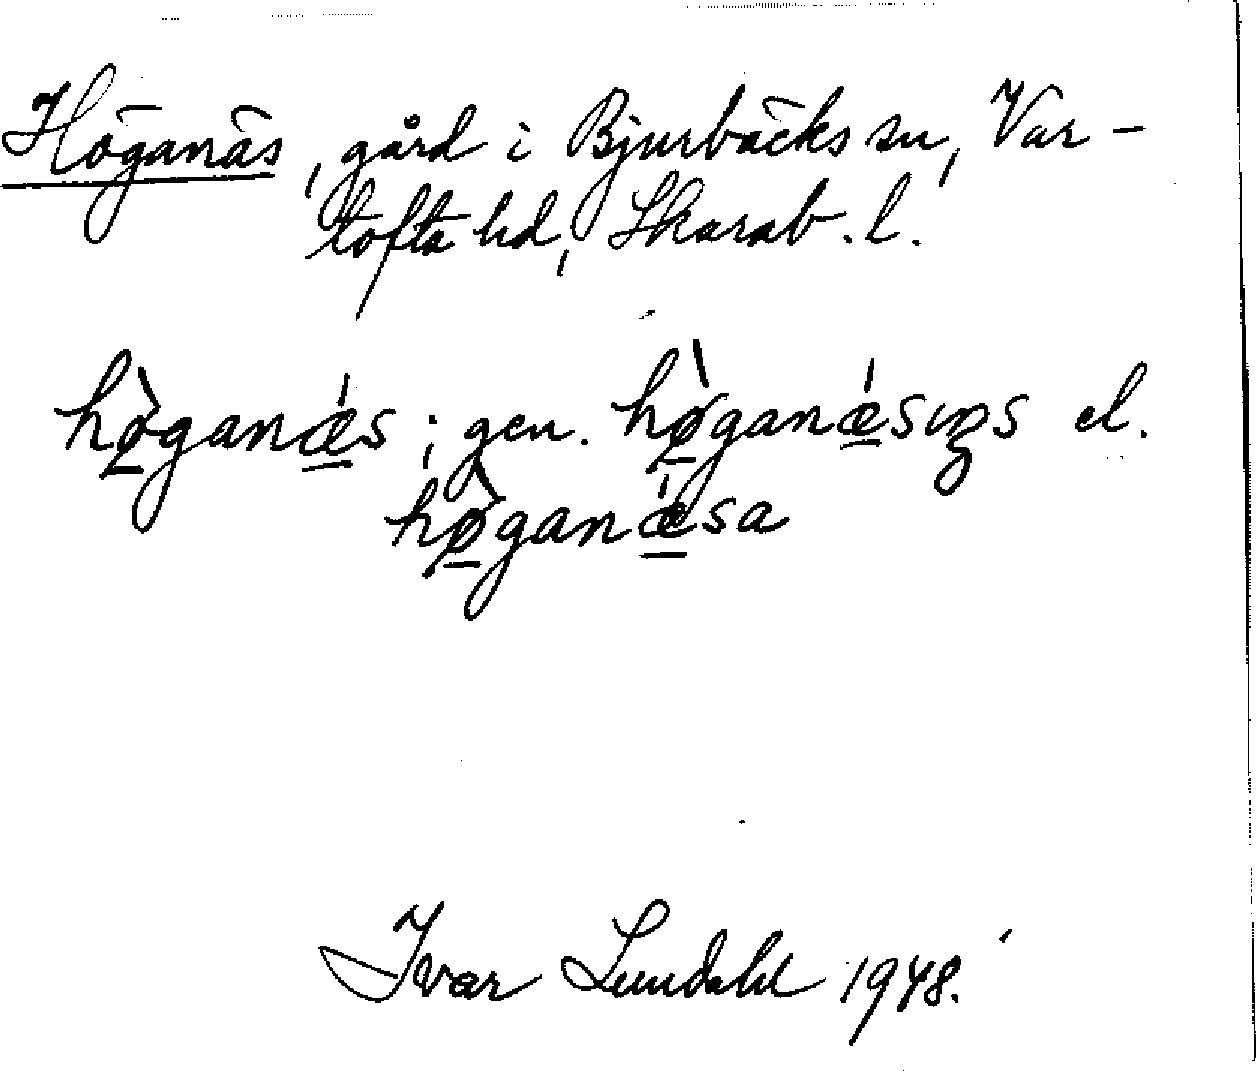 Höganäs, gård i Bjurbäcks sn, Var-
tofta hd, Skarab. l.
hø̀ganǽs; gen. hø̀ganǽsıŋs el.
hø̀ganǽsa
Ivar Lundahl 1948.